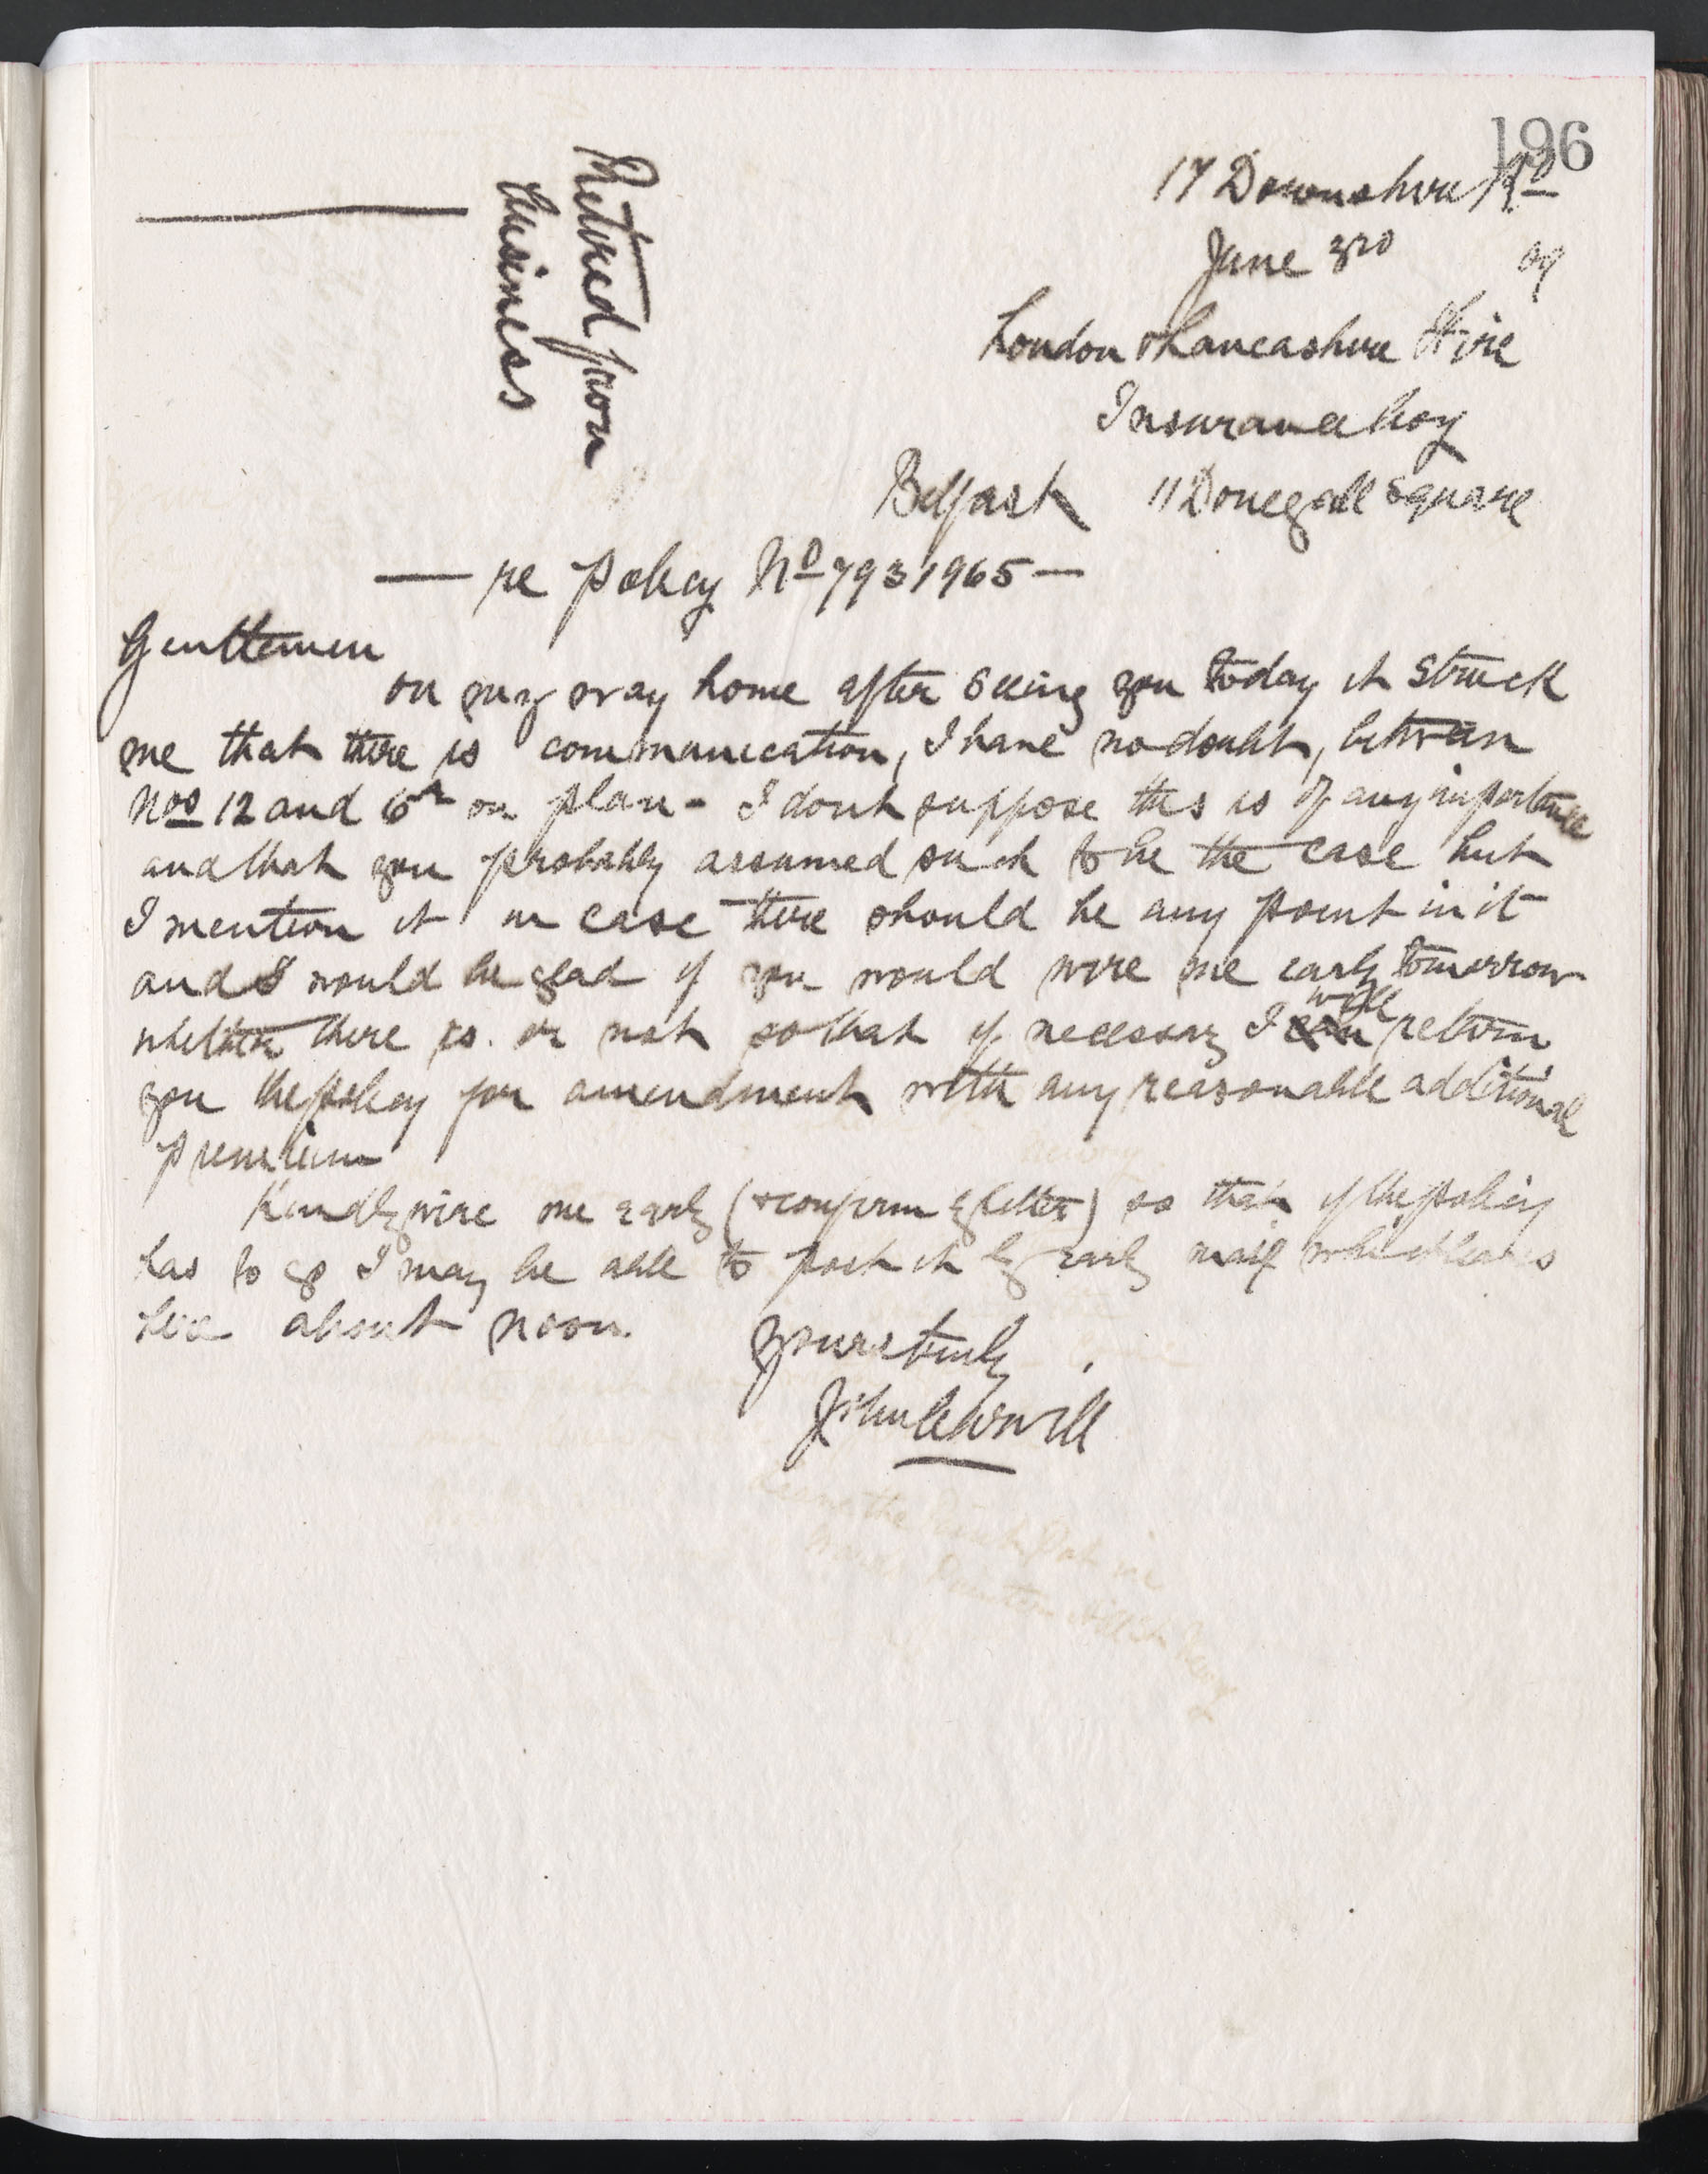 196
Retired from
Business
17 Downshire Rd
June 3rd 09
London & Lancashire Fire
Insurance Coy
Belfast 11 Donegall Square
— re policy No 7931965 —
Gentlemen
on my way home after seeing you today it struck
me that there is communication, I have no doubt, between
Nos 12 and 6 on plan - I dont suppose this is of any importance
and that you probably assumed such to be the case but
I mention it in case there should be any point in it
and I would be glad if you would wire me early tomorrow
whether there is or not so that if necessary I will return
you the policy for amendment with any reasonable additional
premium
Kindly wire me early (& confirm by letter) so that if the policy
has to go I may be able to post it by early mail which leaves
here about noon.
Yours truly
John